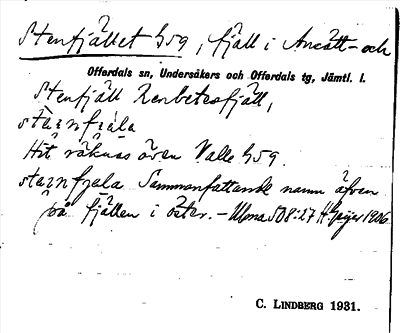 Stenfjället h59, fjäll i Ansätt- och
Offerdals sn, Undersåkers och Offerdals tg, Jämtl. l.
Stenfjäll Renbetesfjäll,
stäinfjäla
Hit räknas även Valle h59.
stäinfjala Sammanfattande namn äfven
på fjällen i öster. – Ulma 508:27 H. Geijer 1906.
C. LINDBERG 1931.